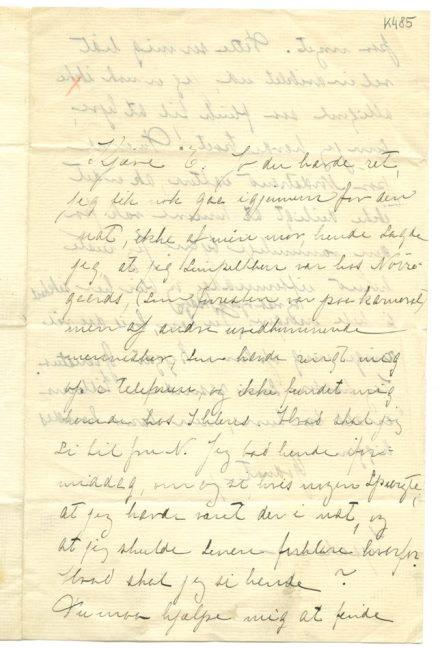 K485
Kjære E. Jo du havde ret,
jeg fik nok gaa igjennem for den
nat, ikke af min mor, hende sagde
jeg at jeg simpelthen var hos Nørre-
gaards, (Lin forresten var paa kameret)
men af andre uvedkommende
mennesker, som havde ringt mig
op i telefonen og ikke fundet mig
hos Hva skal jeg
si til fru N. Jeg bad hende i for-
middag, om og si hvis nogen spurgte,
at jeg havde vært der i nat, og
at jeg skulde senere forklare hvorfor.
Hvad skal jeg si hende?
Du maa hjælpe mig at finde